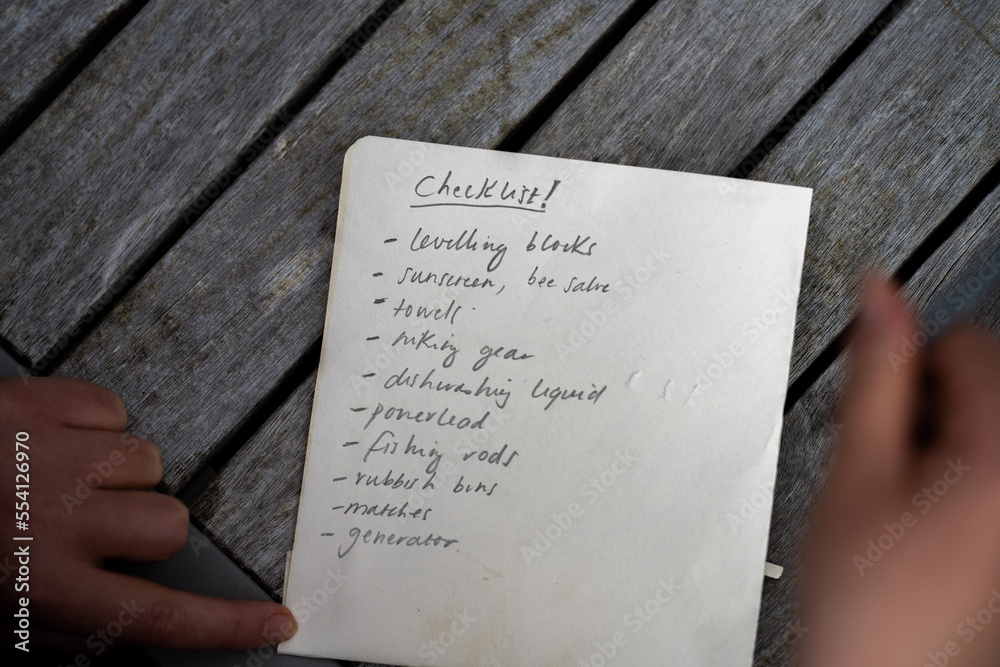 Checklist!
- levelling blocks
- sunscreen, bee salve
- towels
- hiking gear
- dishwashing liquid
- powerlead
- fishing rods
- rubbish bins
- matches
- generator.
Adobe Stock | #554126970